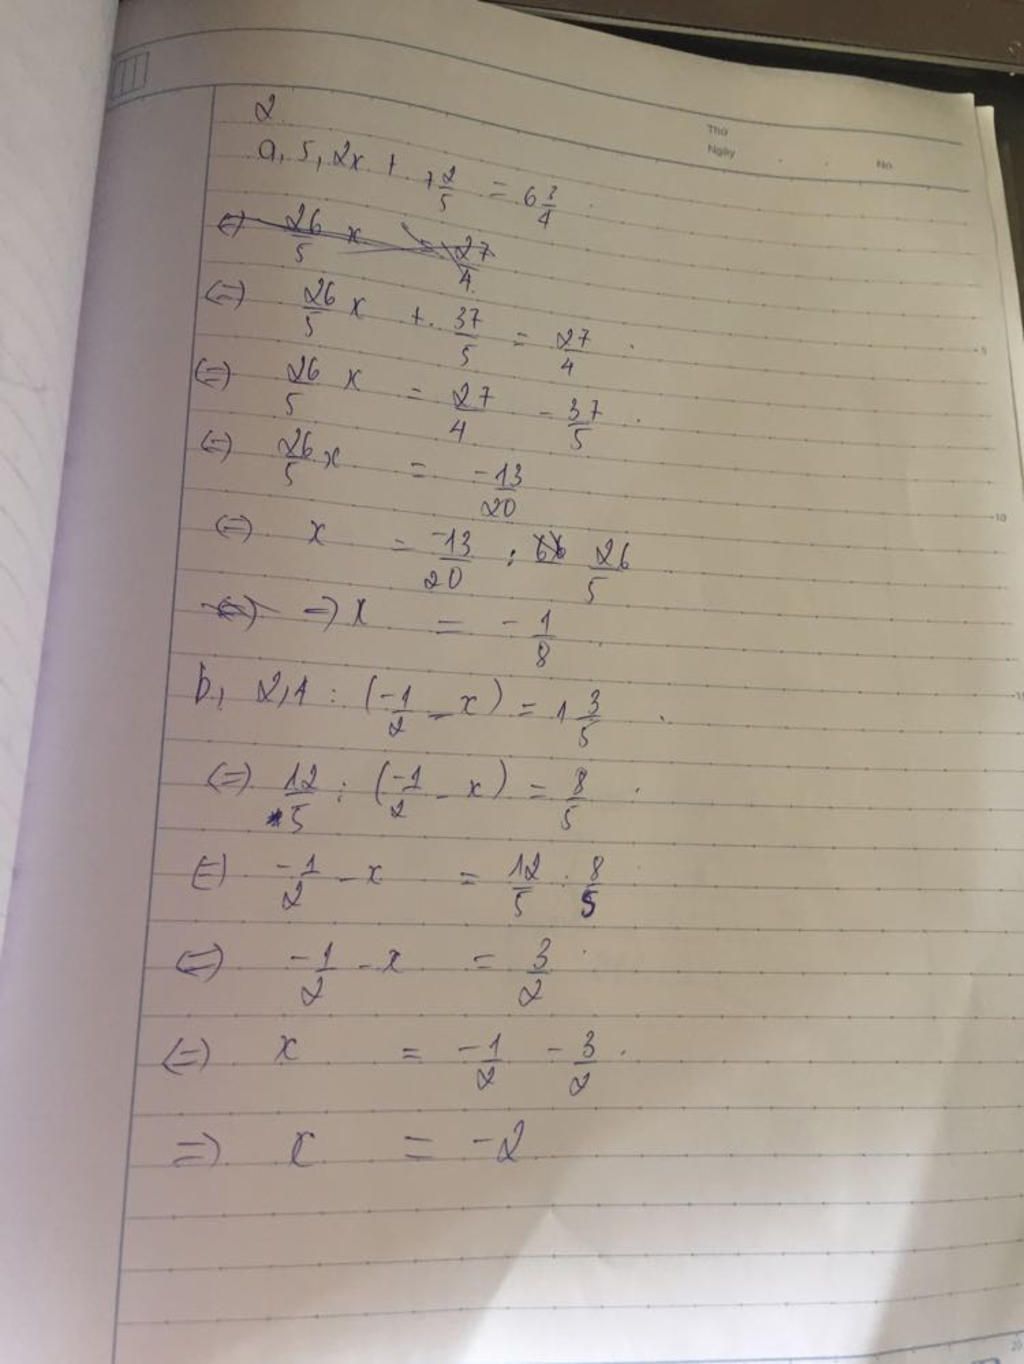 Thứ
Ngày . . No.
2.
a, 5,2x + 7 2/5 = 6 3/4.
(=) 26/5 x = 27/4
(=) 26/5 x + 37/5 = 27/4.
(=) 26/5 x = 27/4 - 37/5.
(=) 26/5 x = -13/20
(=) x = -13/20 : 26/5
(=) =) x = - 1/8
b, 2,1 : (-1/2 - x) = 1 3/5.
(=) 12/5 : (-1/2 - x) = 8/5.
(=) -1/2 - x = 12/5 : 8/5
(=) -1/2 - x = 3/2
(=) x = -1/2 - 3/2.
=) x = -2
5
10
15
20